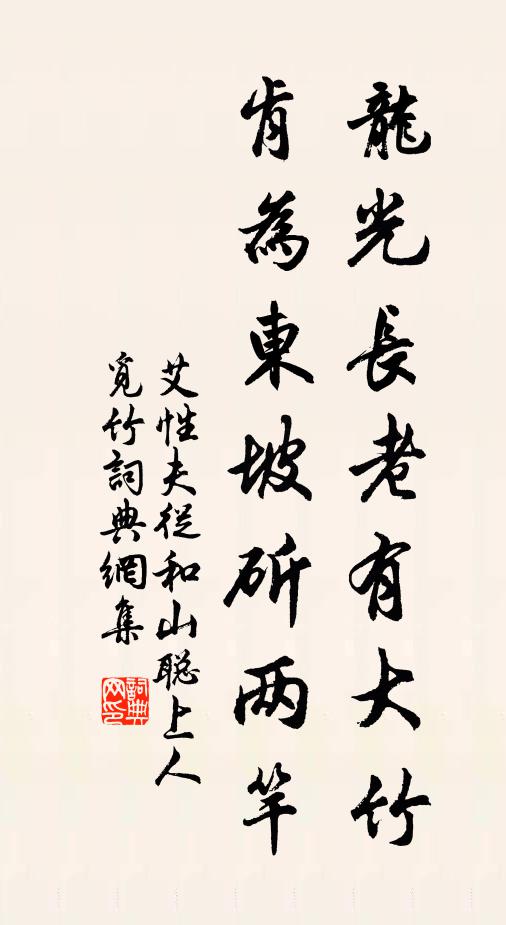 龍光長老有大竹
肯為東坡斫两竿
艾性夫從和山聡上人
覓竹詞典網集
詞典
网印